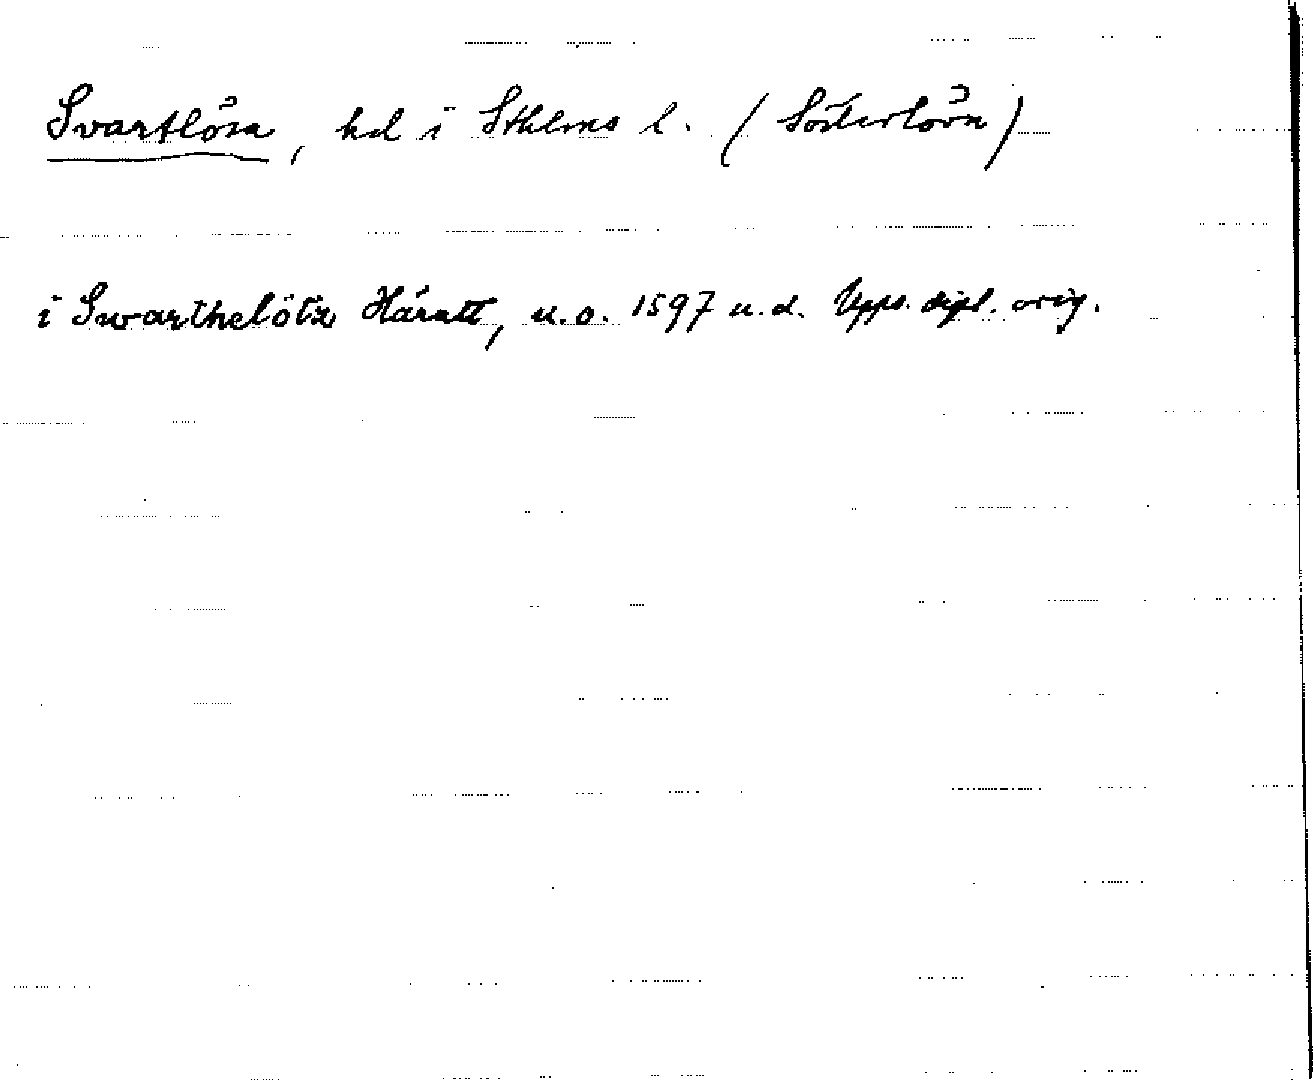 Svartlösa, hd i Sthlms l. (Södertörn)
i Swarthelötz Häratt, u.o. 1597 u.d. Upps. dipl. orig.